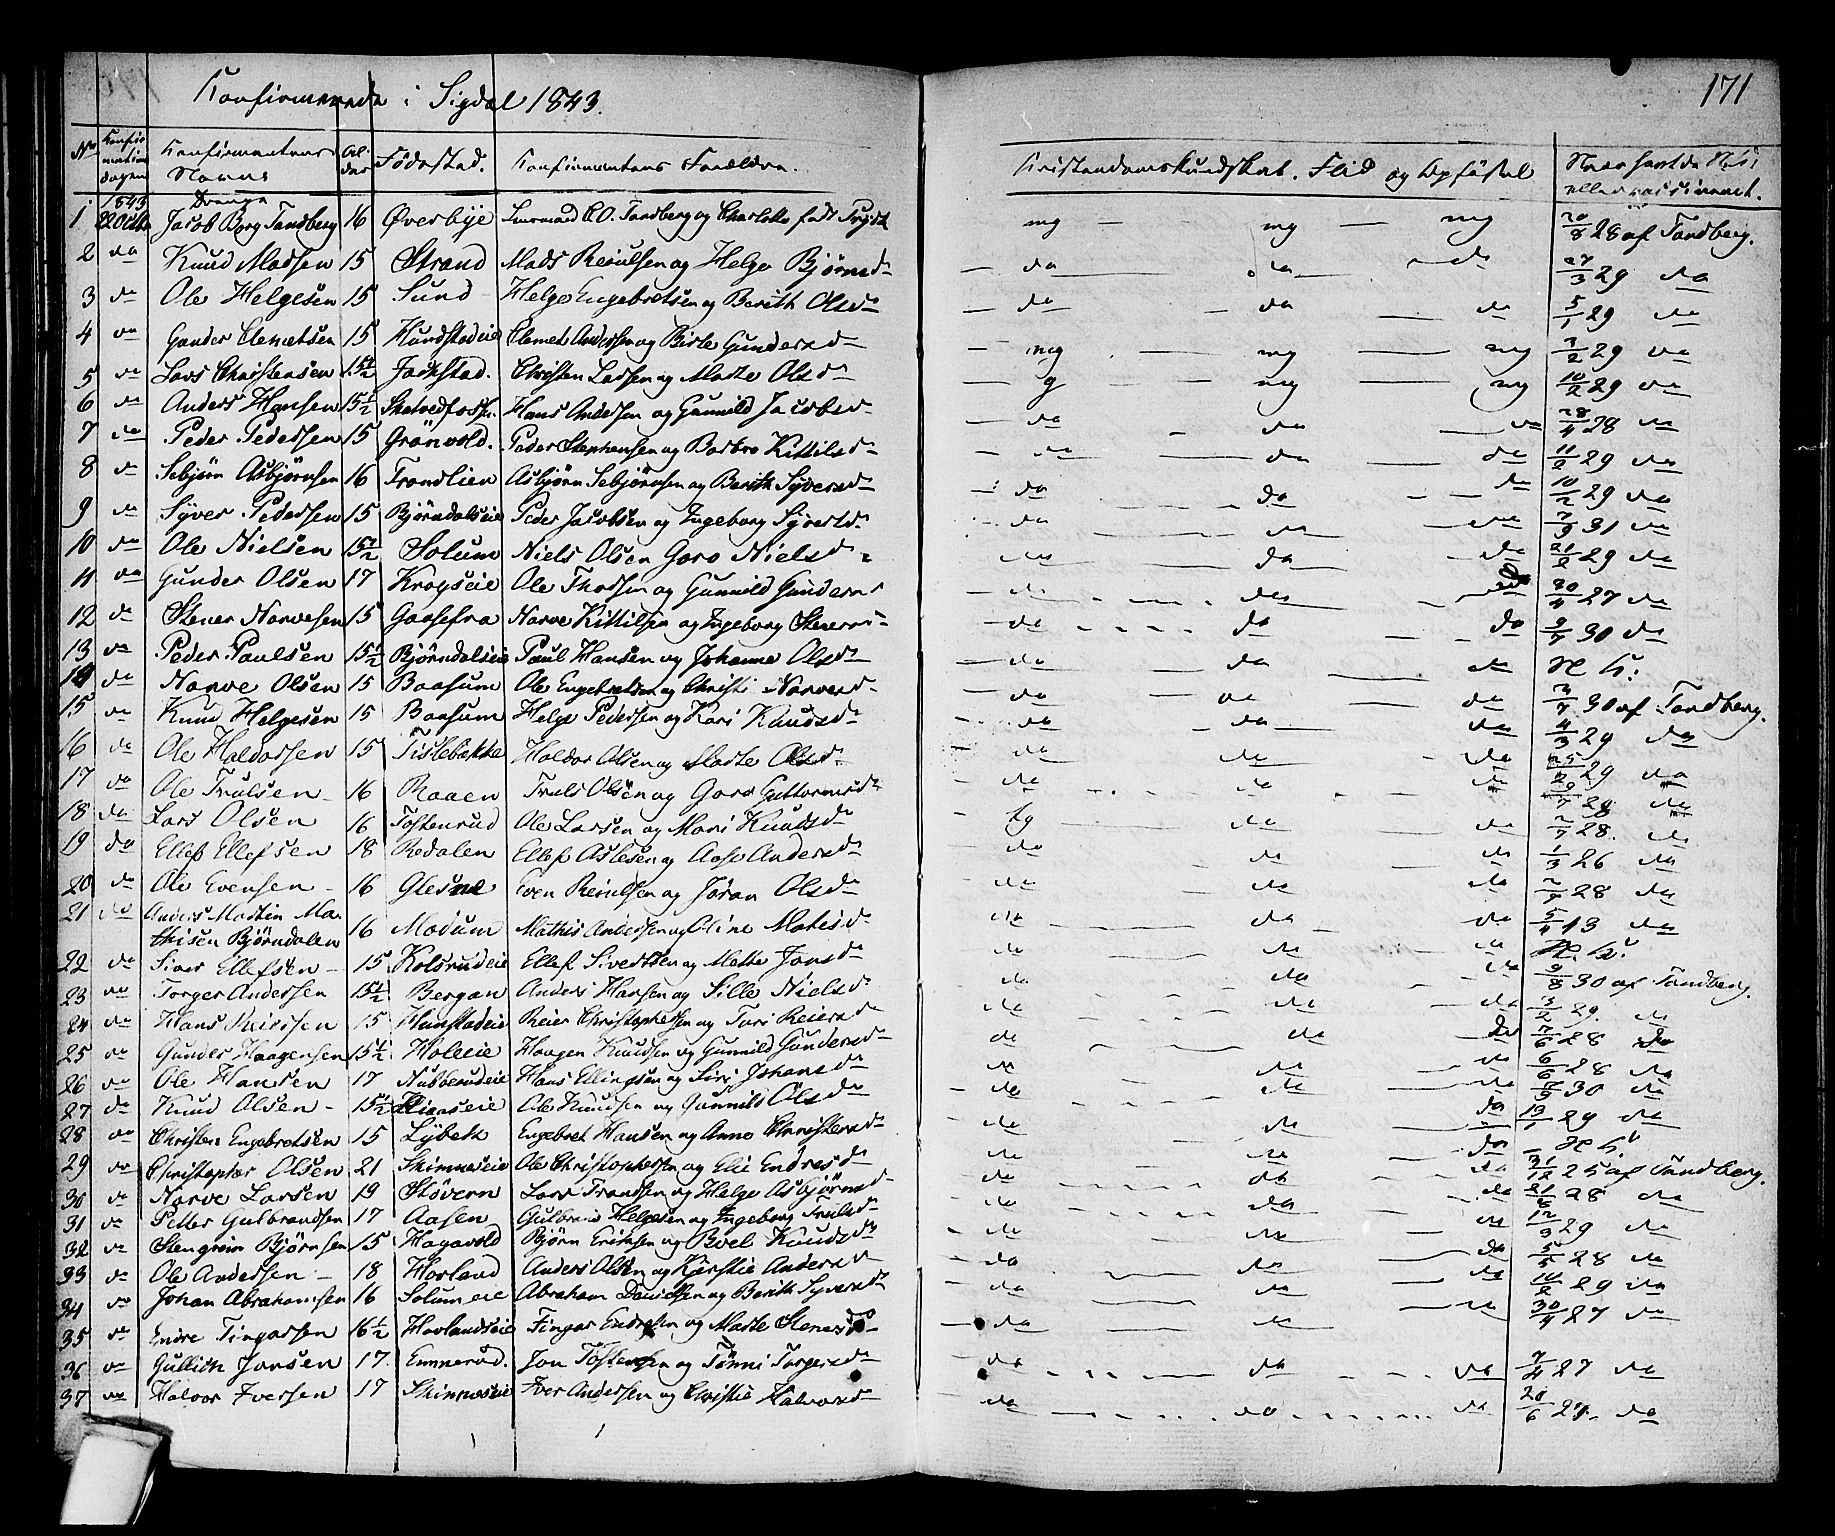 171
Konfirmerede i Sigdal 1843.
No Konfirmations dagen Konfirmantens Navne Alder Fødested. Konfirmantens Forældre. Kristendomskundskab. Flid og Opførsel Naar
1843 Drenge
1 22 Octbr Jacob Borg Tandberg 16 Øverbye C. O. Tandberg og Charlotte født mg mg mg 20/8 28 af Tandberg.
2 do Knud Madsen 15 Strand Mads Reiulsen og Helge Bjørnsd do do do 27/3 29 do
3 do Ole Helgesen 15 Sund Helge Engebretsen og Berith Olsd do do do 5/1 29 do
4 do Gunder Clemetsen 15 Hundstadeie Clemet Andersen og Birte Gundersd mg mg mg 2/2 29 do
5 do Lars Christensen 15½ Jackstad. Christen Larsen og Marte Olsd g mg mg 10/2 29 do
6 do Anders Hansen 15½ Skatvedfoss. Hans Andersen og Gunnild Jacobsd do do do 28/4 28 do
7 do Peder Pedersen 15 Grønvold. Peder Stephensen og Barbro Kittilsd do do do 11/2 29 do
8 do Sebjørn Asbjørnsen 16 Frandlien Asbjørn Sebjørnsen og Berith Syversd do do do 10/2 29 do
9 do Syver Pedersen 15 Bjørndalseie Peder Jacobsen og Ingeborg Syversd do do do 31 do
10 do Ole Nielsen 15½ Solum Niels Olsen Goro Nielsd do do do 21/2 29 do
11 do Gunder Olsen 17 Krogseie Ole Thorsen og Gunnild Gunders do do do 20/4 27 do
12 do Stener Narvesen 15 Gaasefra Narve Kittilsen og Ingeborg Steners do do do 9/7 30 do
13 do Peder Paulsen 15½ Bjørndalseie Paul Hansen og Johanne Olsd do do do N. K.
14 do Narve Olsen 15 Baasum Ole Engebretsen og Christi Narvesd do do do 30 af Tandberg.
15 do Knud Helgesen 15 Baasum Helge Pedersen og Kari Knudsd do do do 4/3 29 do
16 do Ole Haldorsen 15 Tislebakke Haldor Olsen og Marte Olsd do do do 25 29 do
17 do Ole Trulsen 16 Raaen Truls Olsen og Goro Guttormsd do do do 29 do
18 do Lars Olsen 16 Tostenrud Ole Larsen og Mari Knudsd tg do do 2/7 28. do
19 do Ellef Ellefsen 18 Redalen Ellef Aslesen og Aase Andersd do do do 1/3 26 do
20 do Ole Evensen 16 Glesne Even Reiulsen og Jøran Olsd do do do 28 do
21 do Anders Martin Ma-
thisen Bjørndalen 16 Modum Mathis Andersen og Oline Matesd do do do 5/4 13 do
22 do Siver Ellefsen 15 Kolsrudeie Ellef Sivertsen og Mette Jonsd do do do N. K.
23 do Torger Andersen 15½ Bergan Anders Hansen og Sille Nielsd do do do 9/8 30 af Tandberg.
24 do Hans Reiersen 15 Hunstadeie Reier Christophersen og Turi Reiersd do do do 3/2 29. do
25 do Gunder Haagensen 15½ Holeeie Haagen Knudsen og Gunnild Gundersd do do do 7/6 28 do
26 do Ole Hansen 17 Nubberudeie Hans Ellingsen og Siri Johansd do do do 6/6 28 do
27 do Knud Olsen 15½ Ole Knudsen og Gunnild Olsd do do do 30 do
28 do Christen Engebretsen 15 Lybek Engebret Hansen og Anne Christensd do do do 19/1 29 do
29 do Christopher Olsen 21 Skinneseie Ole Christophersen og Elie Endresd do do do N. K.
30 do Narve Larsen 19 Støvern Lars Trondsen og Helge Asbjørnsd do do do 31/12 25 af Tandberg.
31 do Petter Gulbrandsen 17 Aasen Gulbrand Helgesen og Ingeborg Trulsd do do do 28 do
32 do Stengrim Bjørnsen 15 Hagavold Bjørn Eriksen og Boel Knudsd do do do 12/3 29 do
33 do Ole Andersen 18 Hovland Anders Olsen og Kjerstie Andersd do do do 5/5 28 do
34 do Johan Abrahamsen 16 Solumeie Abraham Davidsen og Berith Syversd do do do 10/2 29 do
35 do Endre Tingarsen 16½ Hovlandseie Fingar Endresen og Marte Stenersd do do do 30/4 27 do
36 do Gullich Jonsen 17. Emnerud. Jon Tostensen og Tønni Torgersd do do do 7/4 27 do
37 do Halvor Iversen 17 Skinneseie Iver Andersen og Christie Halvorsd do do do 20/6 do